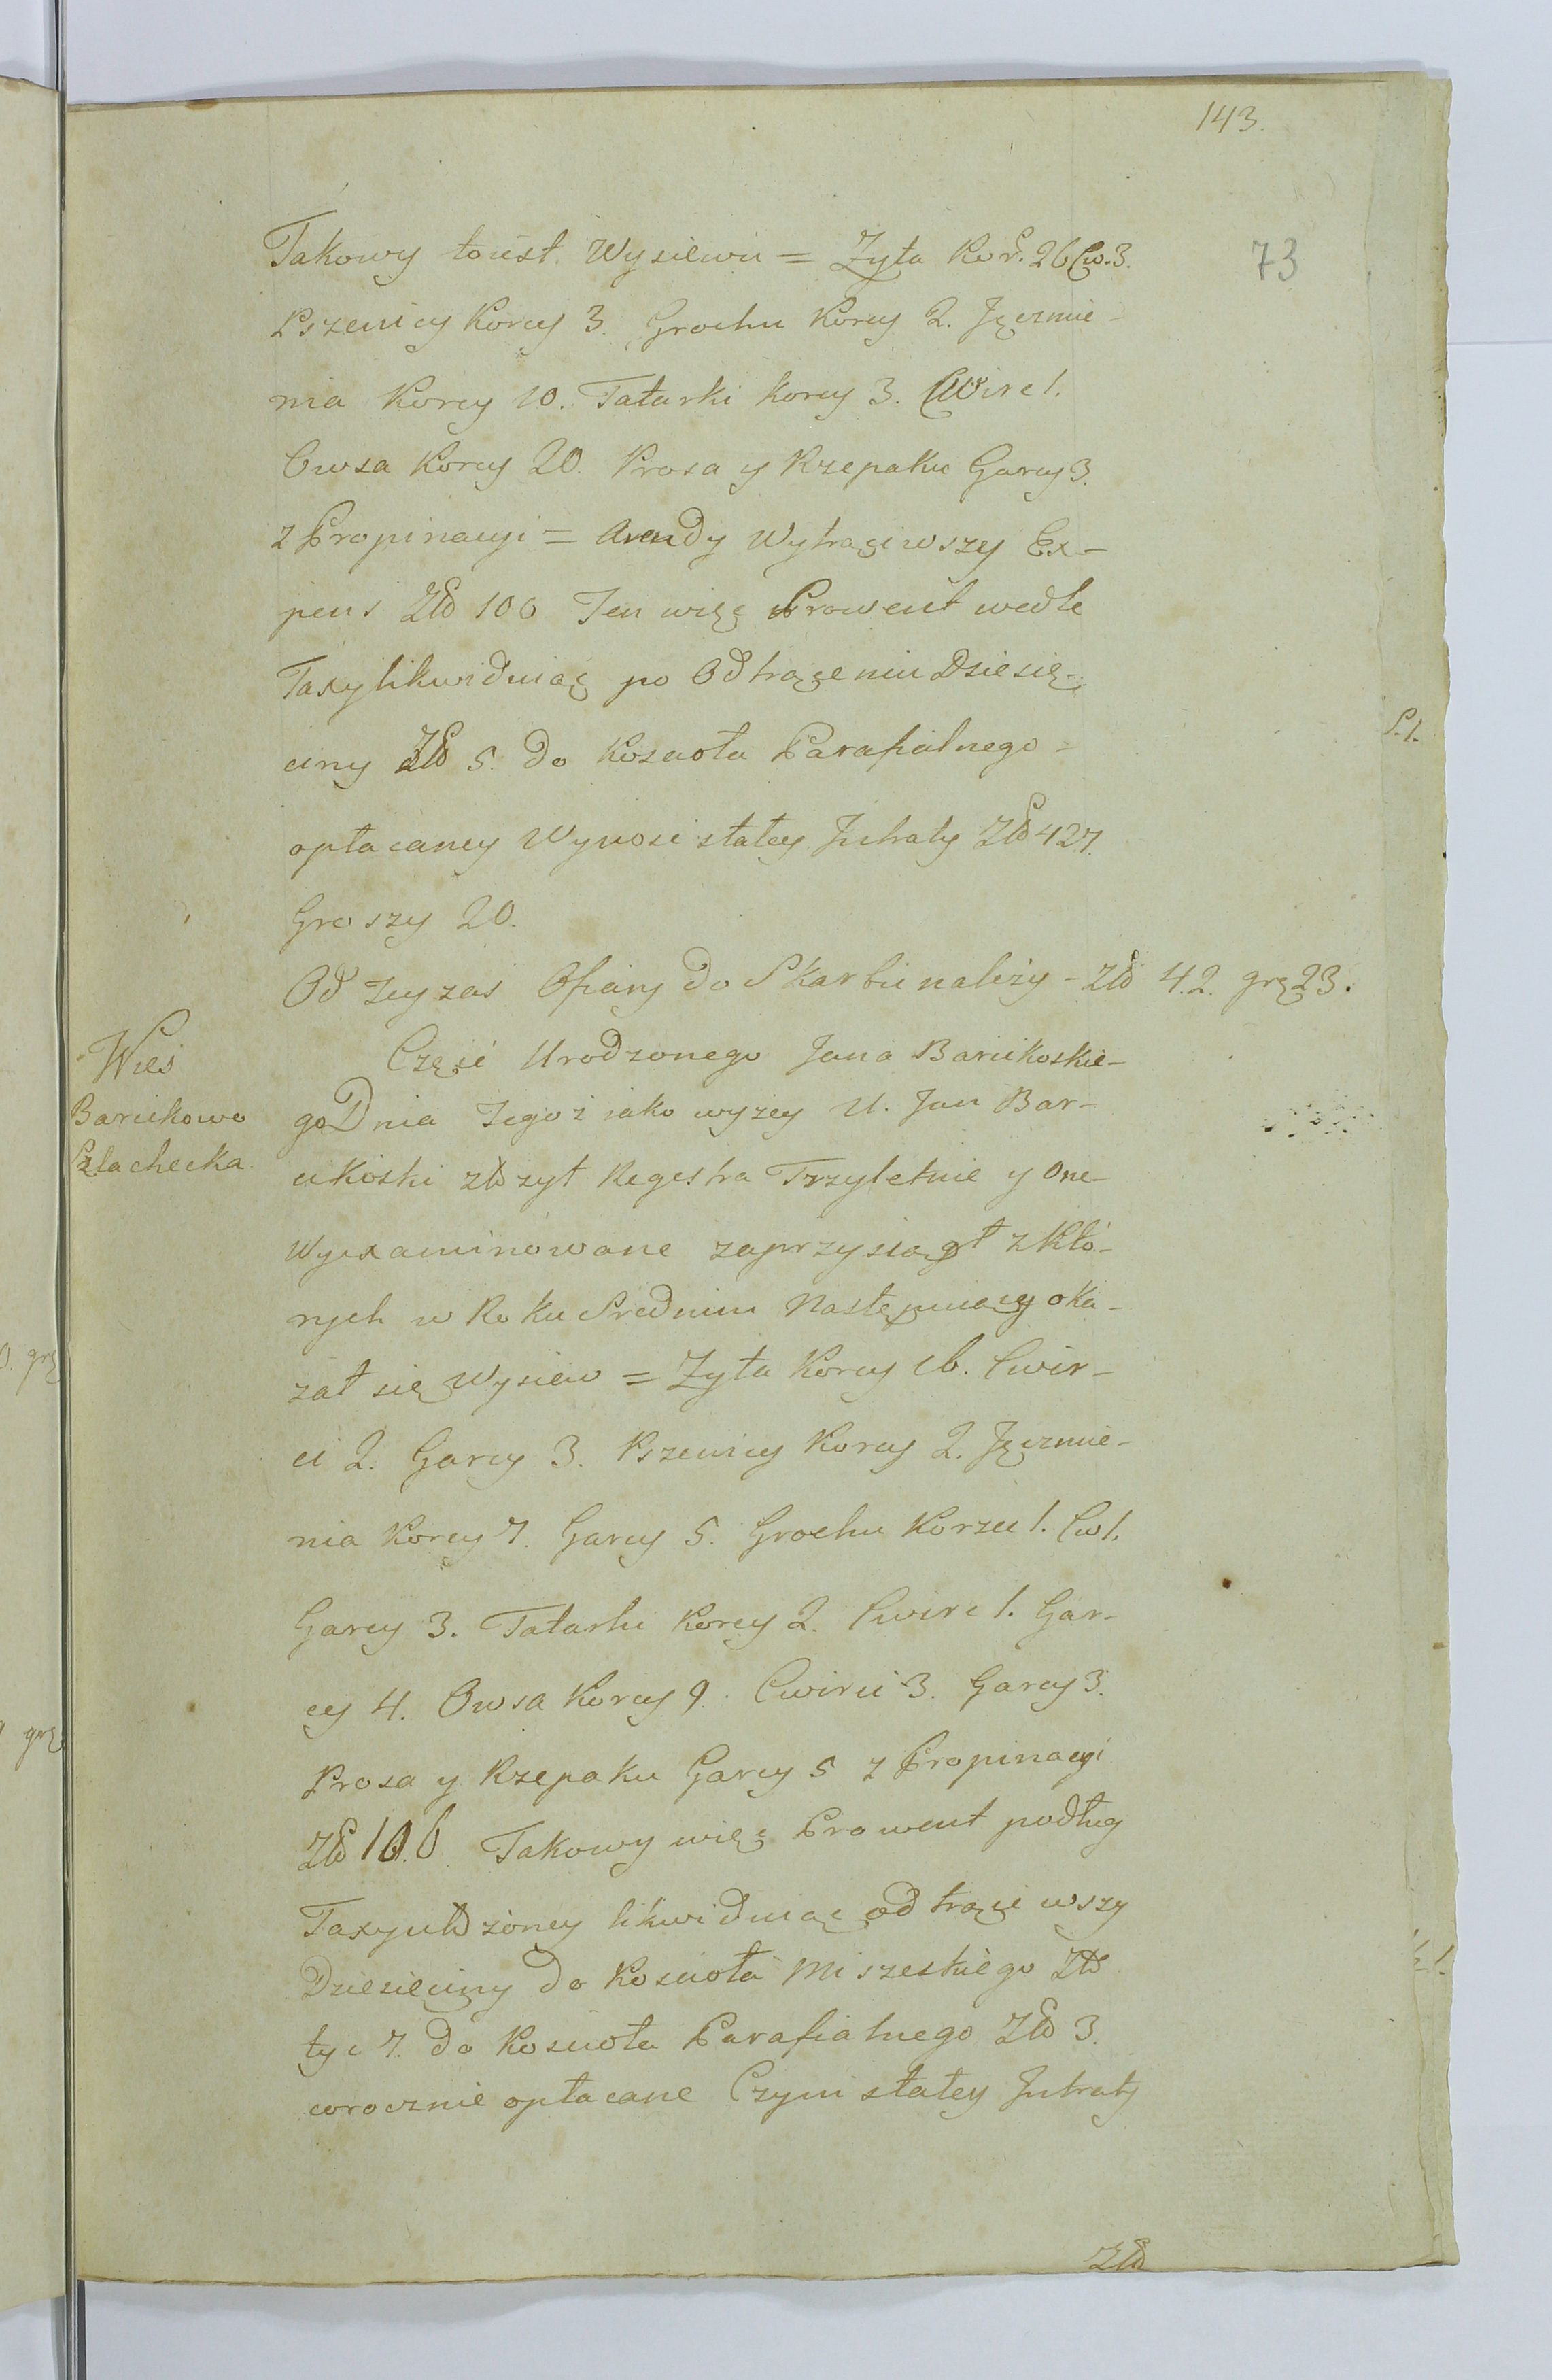 143.
73
Takowy to iest Wysiewu = Zyta Kor. 26 Cw. 3.
Pszenicy Korcy 3. Grochu Korcy 2. Jęczmie-
nia Korcy 10. Tatarki Korcy 3. Cwirc 1.
Owsa Korcy 20. Prosa y Rzepaku Garcy 3.
z Propinacyi = Arendy Wytrąciwszy Ex-
pens Zł 100 Ten więc Prowent wedle
Taxy likwiduiąc po Odtrąceniu Dziesię-
ciny Zł 5. do Koscioła Parafialnego -
opłacaney Wynosi stałey Intraty Zł 427.
Groszy 20.
Od tey zas Ofiary do Skarbu należy - Zł 42. grę 23.
Wieś
Barcikowo
Szlachecka
Częsć Urodzonego Jana Barcikoskie-
go Dnia Tegoż iako wyzey U. Jan Bar-
cikoski złożył Regestra Trzyletnie y One-
Wyexaminowane zaprzysiągł z któ-
rych w Roku Srednim Następuiący oka-
zał się Wysiew = Zyta Korcy 16. Cwir-
ci 2. Garcy 3. Pszenicy Korcy 2. Jęczmie-
nia Korcy 7. Garcy 5. Grochu Korzec 1. Cw 1.
Garcy 3. Tatarki Korcy 2. Cwirc 1. Gar-
cy 4. Owsa Korcy 9. Cwirci 3. Garcy 3.
Prosa y Rzepaku Garcy 5 z Propinacyi
Zł Takowy więc Prowent podług
Taxy likwiduiąc odtrąciwszy
Dziesięciny do Koscioła Miszeskiego Zł
tyc 7. do Koscioła Parafialnego Zł 3.
corocznie opłacane Czyni stałey Intraty
Zł